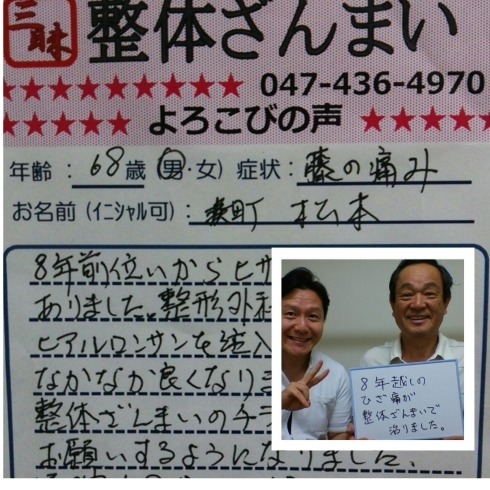 三昧
整体ざんまい
★★★★★★★★★ 047-436-4970
★★★★★ よろこびの声 ★★★★★
年齢：68歳 男・女）症状：膝の痛み
お名前（イニシャル可）： 町 松本
8年前位いからヒザ
ありました。整形外科
ヒアルロンサンを注入
なかなか良くなりま
整体ざんまいのチラ
お願いするようになりました、
8年越しの
ひざ痛が
整体ざんまいで
治りました。